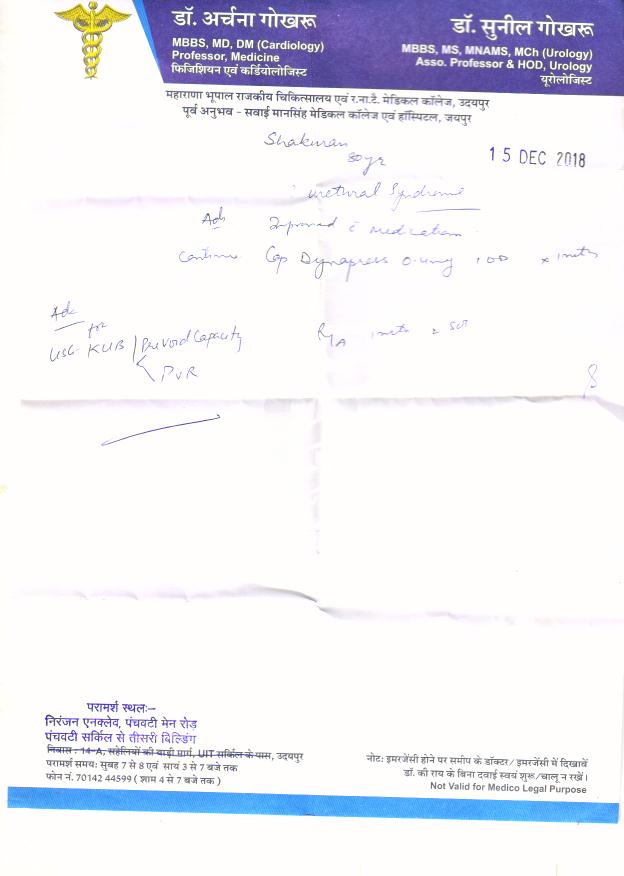 डॉ. अर्चना गोखरू
MBBS, MD, DM (Cardiology)
Professor, Medicine
फिजिशियन एवं कर्डियोलोजिस्ट
डॉ. सुनील गोखरू
MBBS, MS, MNAMS, MCh (Urology)
Asso. Professor & HOD, Urology
यूरोलोजिस्ट
महाराणा भूपाल राजकीय चिकित्सालय एवं र.ना.टै. मेडिकल कॉलेज, उदयपुर
पूर्व अनुभव - सवाई मानसिंह मेडिकल कॉलेज एवं हॉस्पिटल, जयपुर
80 yr
15 DEC 2018
urethral Syndrome
Adv Improved c medication
Continue Cap Dynapress 0.4mg 1 OD x 1 month
Adv
for
USG- KUB / Pre Void Capacity
PVR
R/A 1 month
परामर्श स्थल:-
निरंजन एनक्लेव, पंचवटी मेन रोड़
पंचवटी सर्किल से तीसरी बिल्डिंग
निवास : 14-A, सहेलियों की बाड़ी मार्ग, UIT सर्किल के पास, उदयपुर
परामर्श समय: सुबह 7 से 8 एवं सायं 3 से 7 बजे तक
फोन नं. 70142 44599 ( शाम 4 से 7 बजे तक )
नोट: इमरजेंसी होने पर समीप के डॉक्टर / इमरजेंसी में दिखावें
डॉ. की राय के बिना दवाई स्वयं शुरू/चालू न रखें।
Not Valid for Medico Legal Purpose